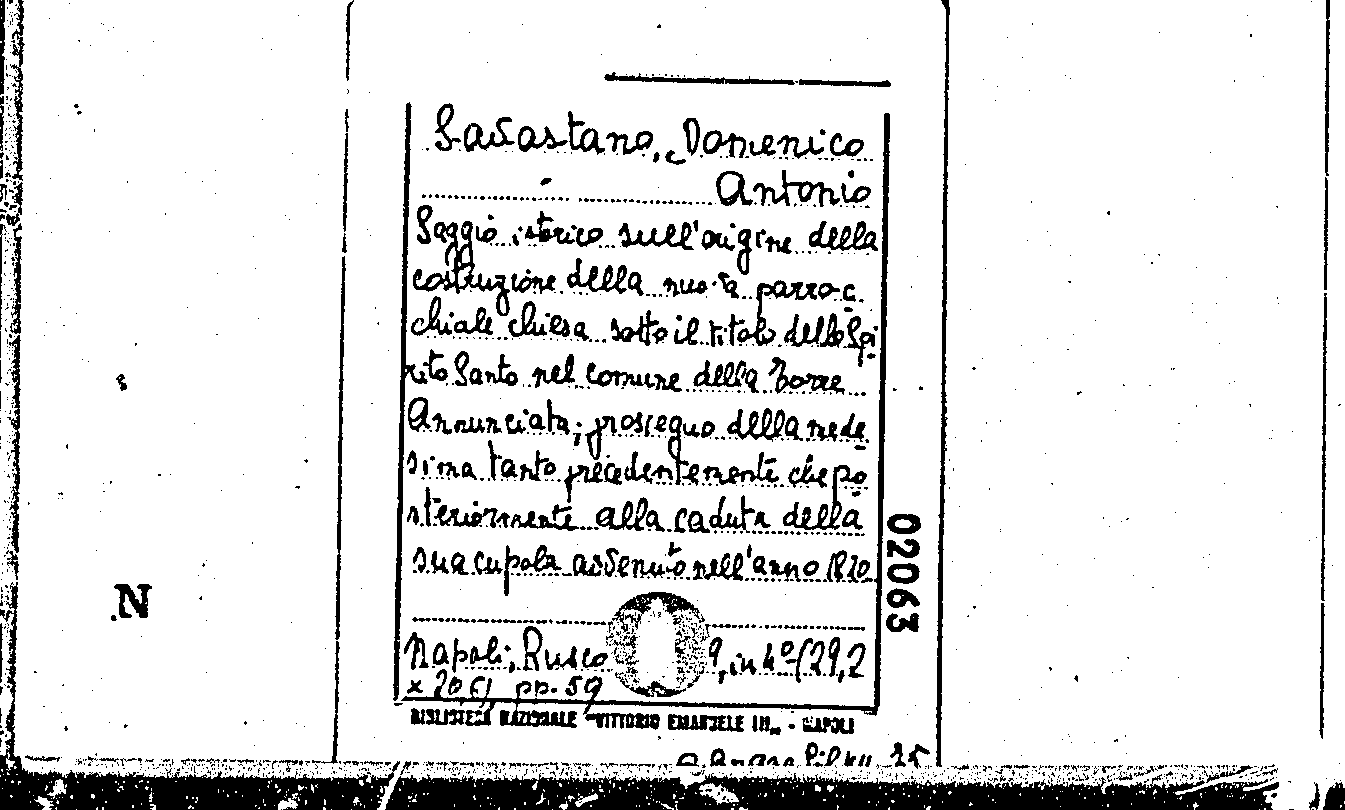 Savastano, Domenico
Antonio
Saggio istorico sull'origine della
costruzione della nuova parroc
chiale chiesa sotto il titolo dello Spi
rito Santo nel comune della Torre
Annunciata; proseguo della mede
sima tanto precedentemente che po
steriormente alla caduta della
sua cupola avvenuto nell'anno 1820
Napoli, Rusco 9, in 4º (29,2
x 20,6) pp. 59
BIBLIOTECA NAZIONALE "VITTORIO EMANUELE III„ - NAPOLI
35
02063
N